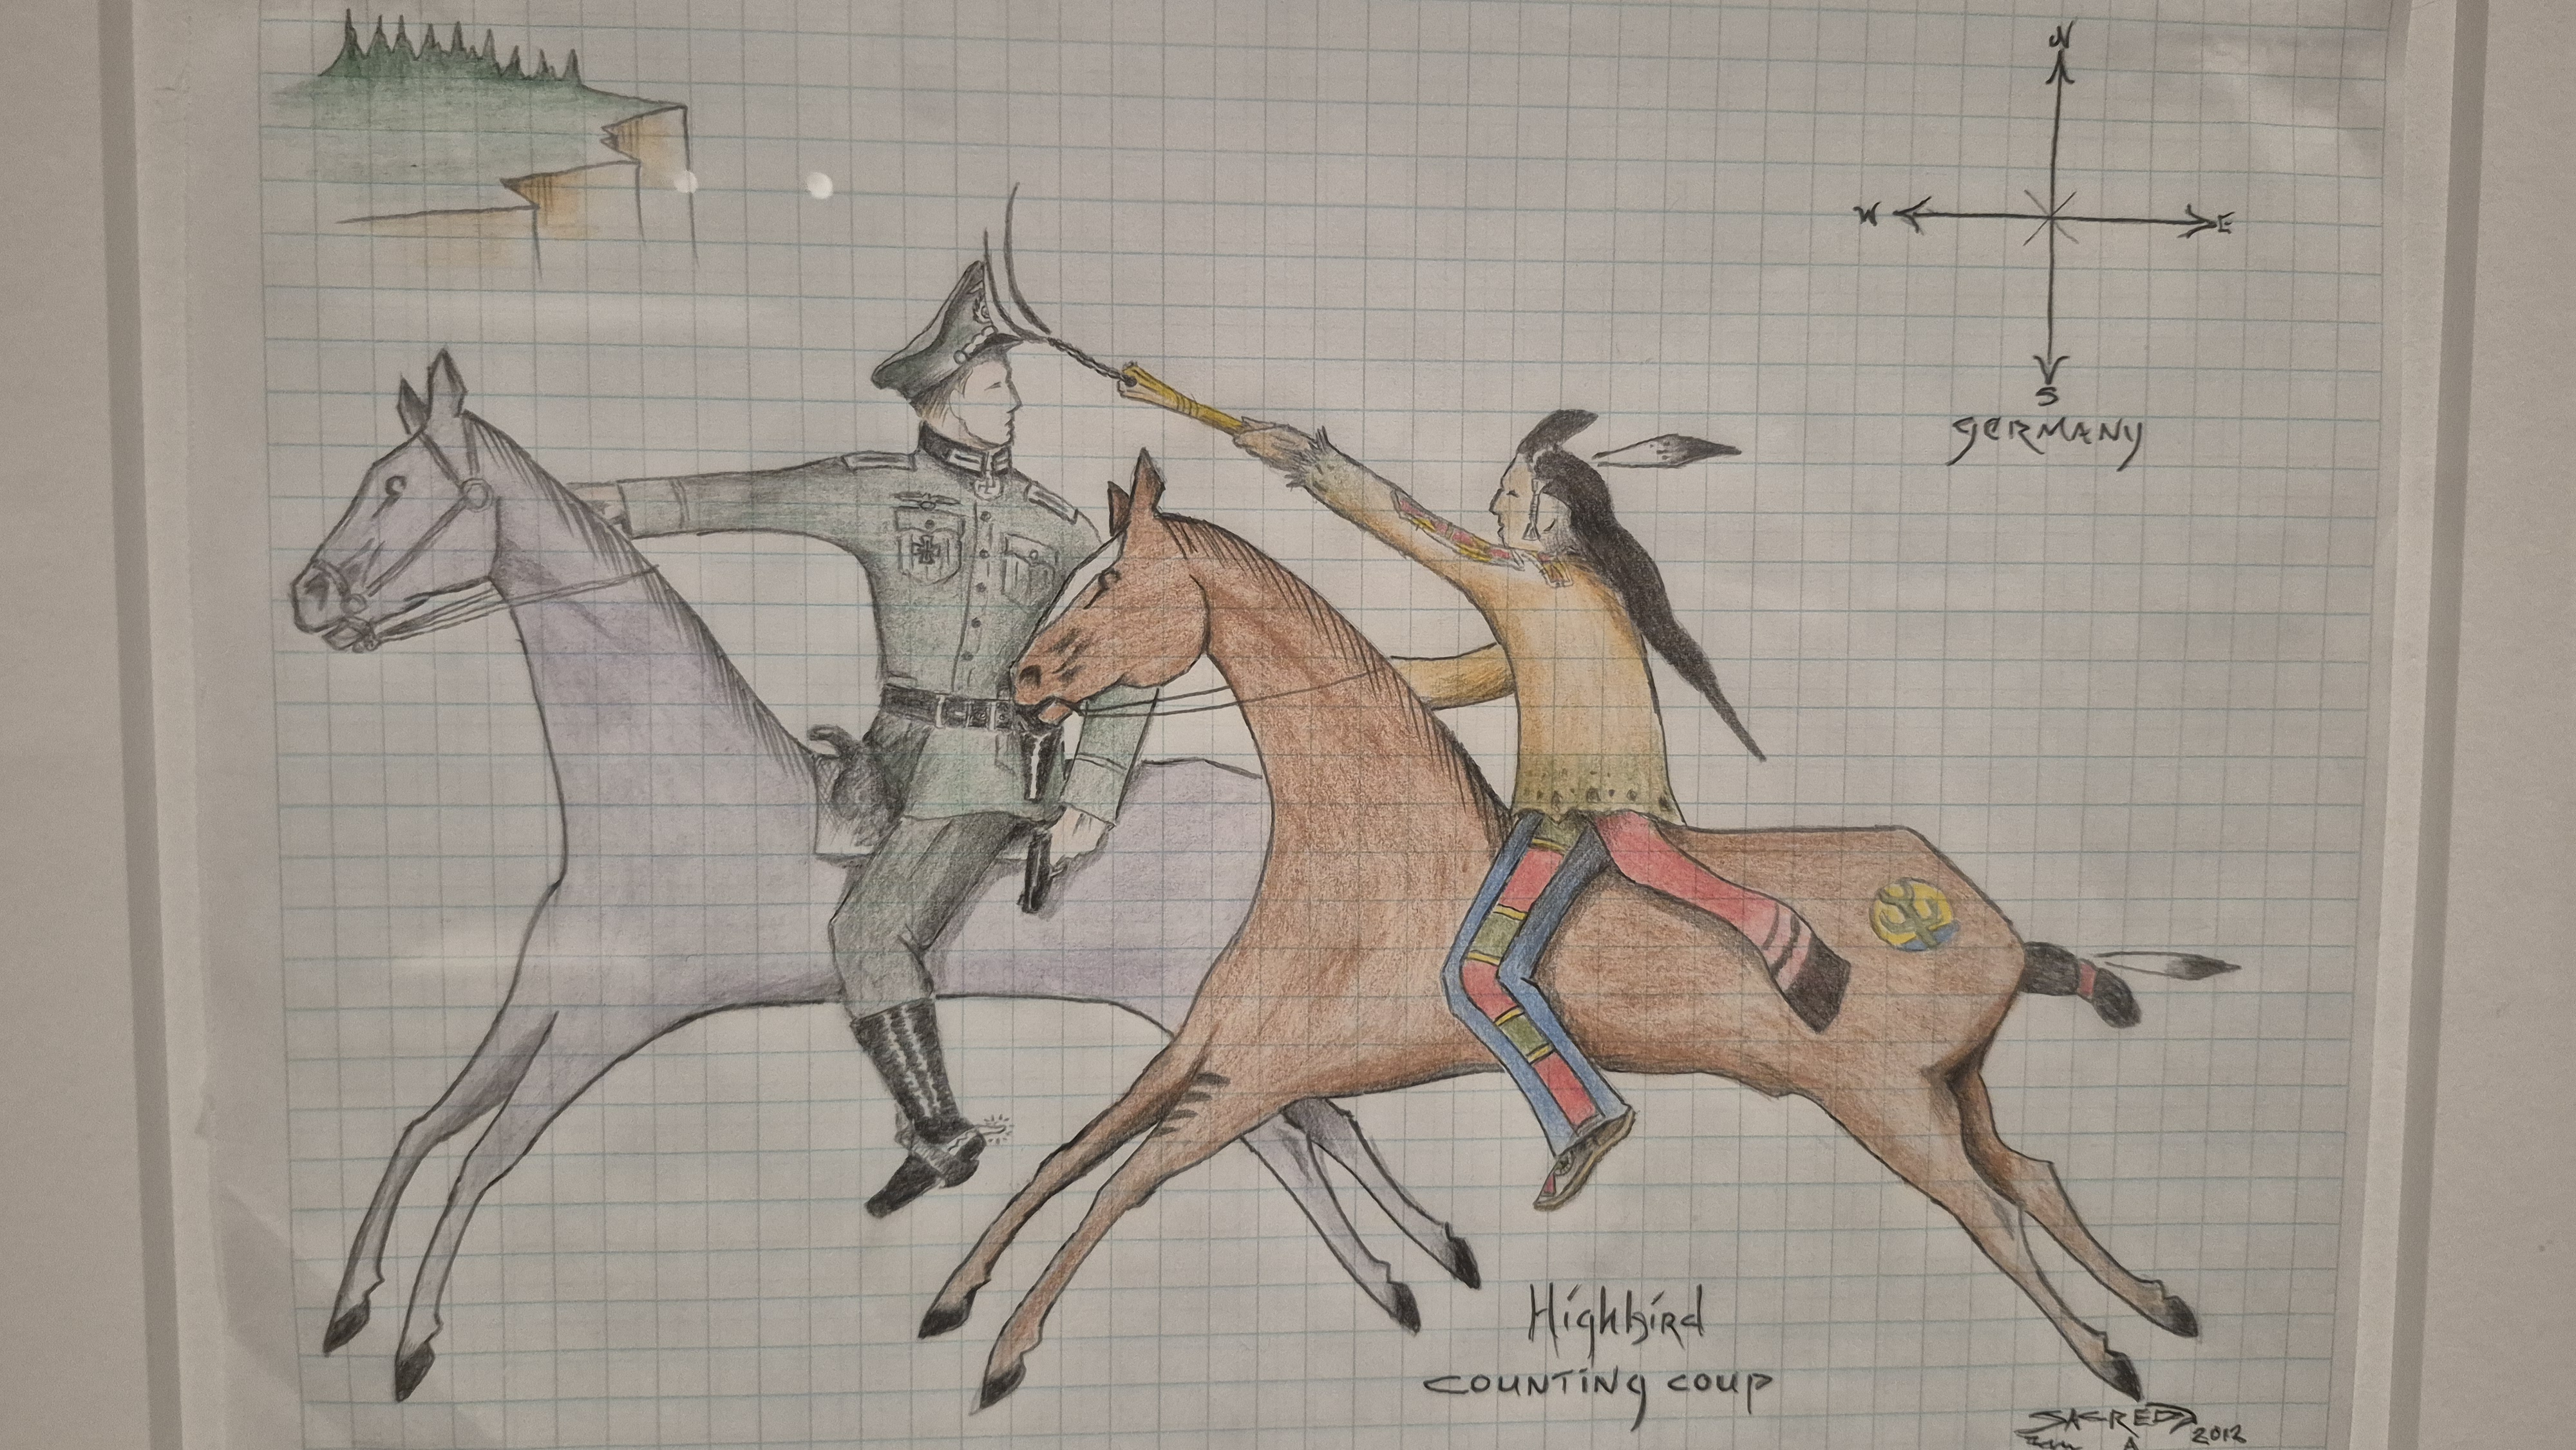 N
W E
S
GERMANY
Highbird
COUNTING COUP
SACRED 2012